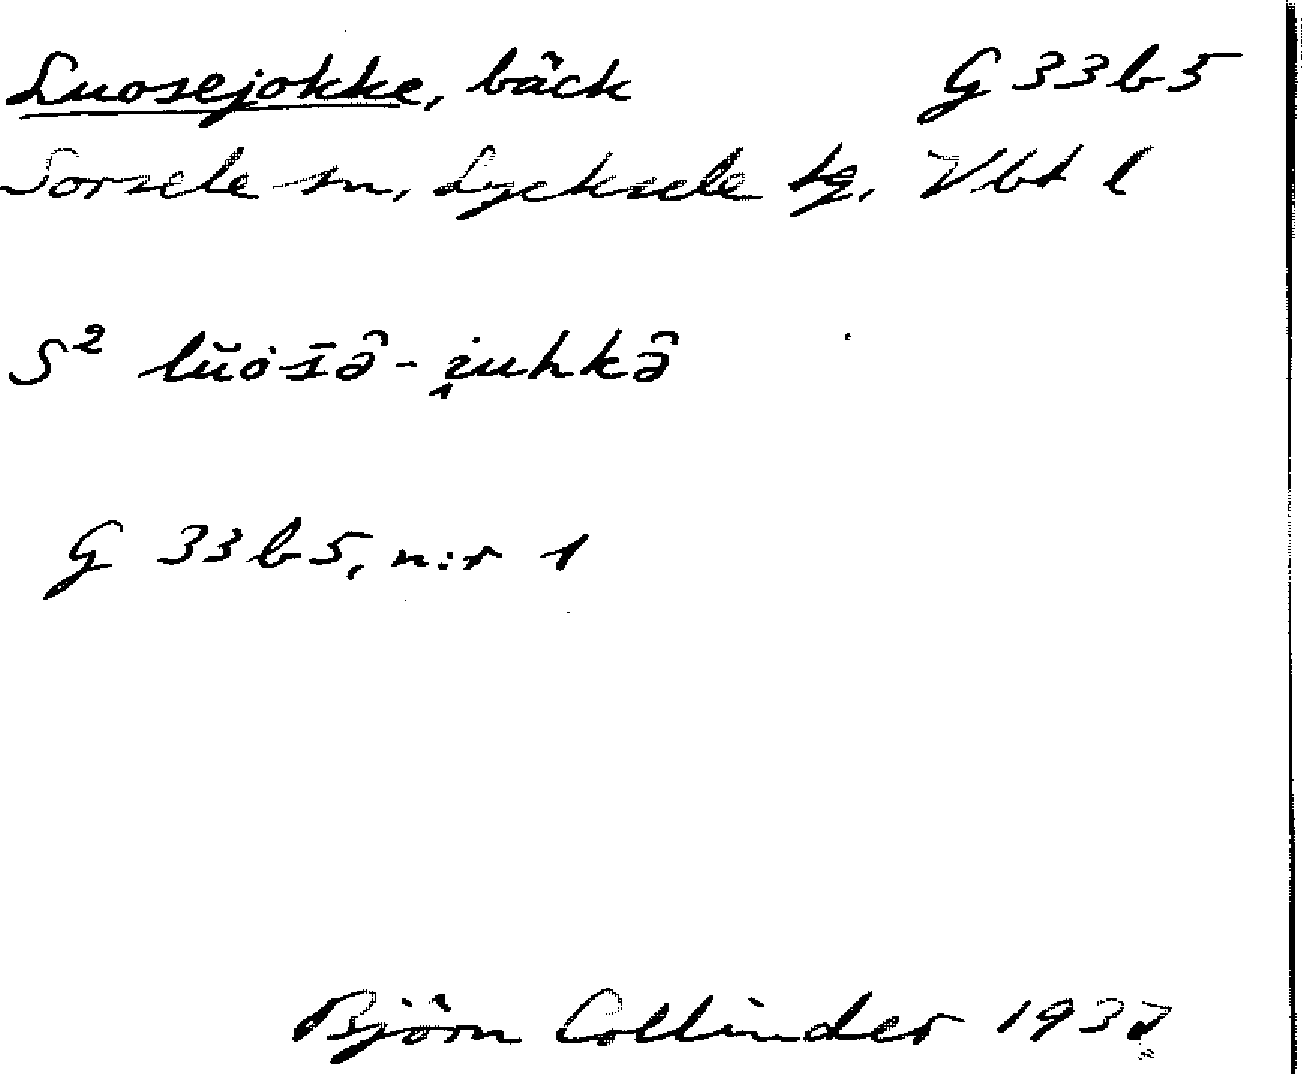 Luosejokke, bäck G 33 b 5
Sorsele sn, Lycksele tg, Vbt l
S² lŭȯs̄ə̂ - i̯uhkə̂
G 33 b 5, n:r 1
Björn Collinder